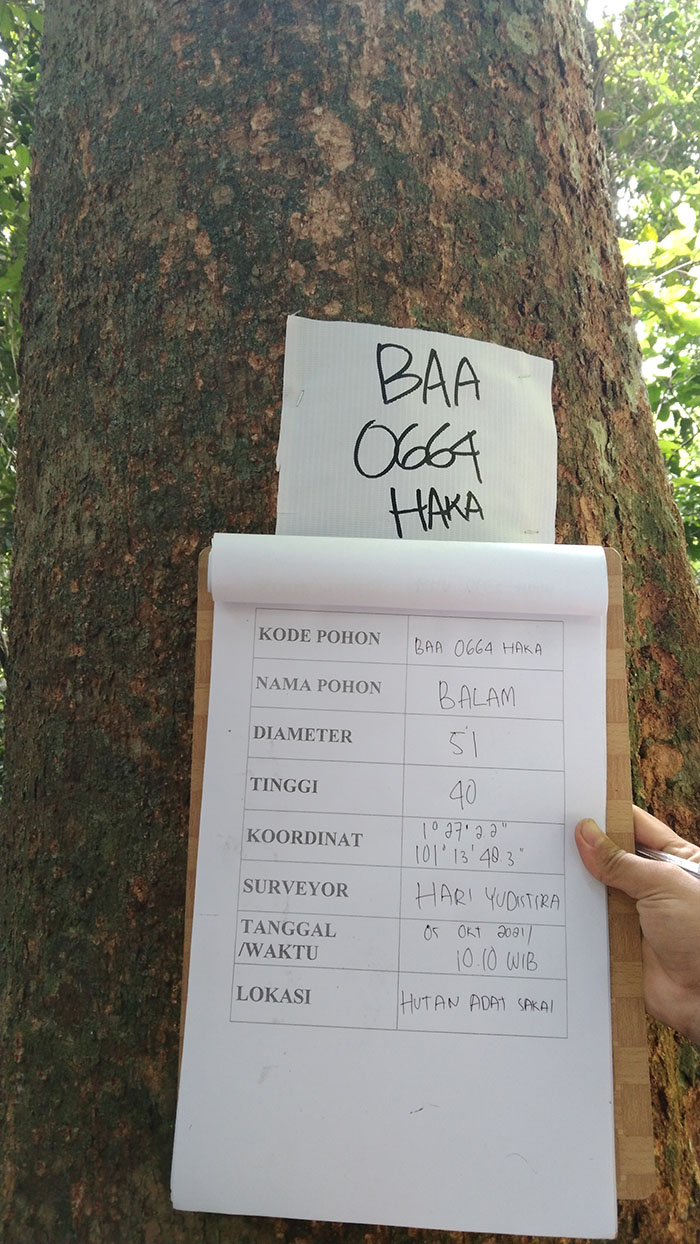 BAA
0664
HAKA
KODE POHON BAA 0664 HAKA
NAMA POHON BALAM
DIAMETER 51
TINGGI 40
KOORDINAT 1° 27' 22"
101° 13' 40.3"
SURVEYOR HARI YUDISTIRA
TANGGAL 05 OKT 2021/
/WAKTU 10.10 WIB
LOKASI HUTAN ADAT SAKAI